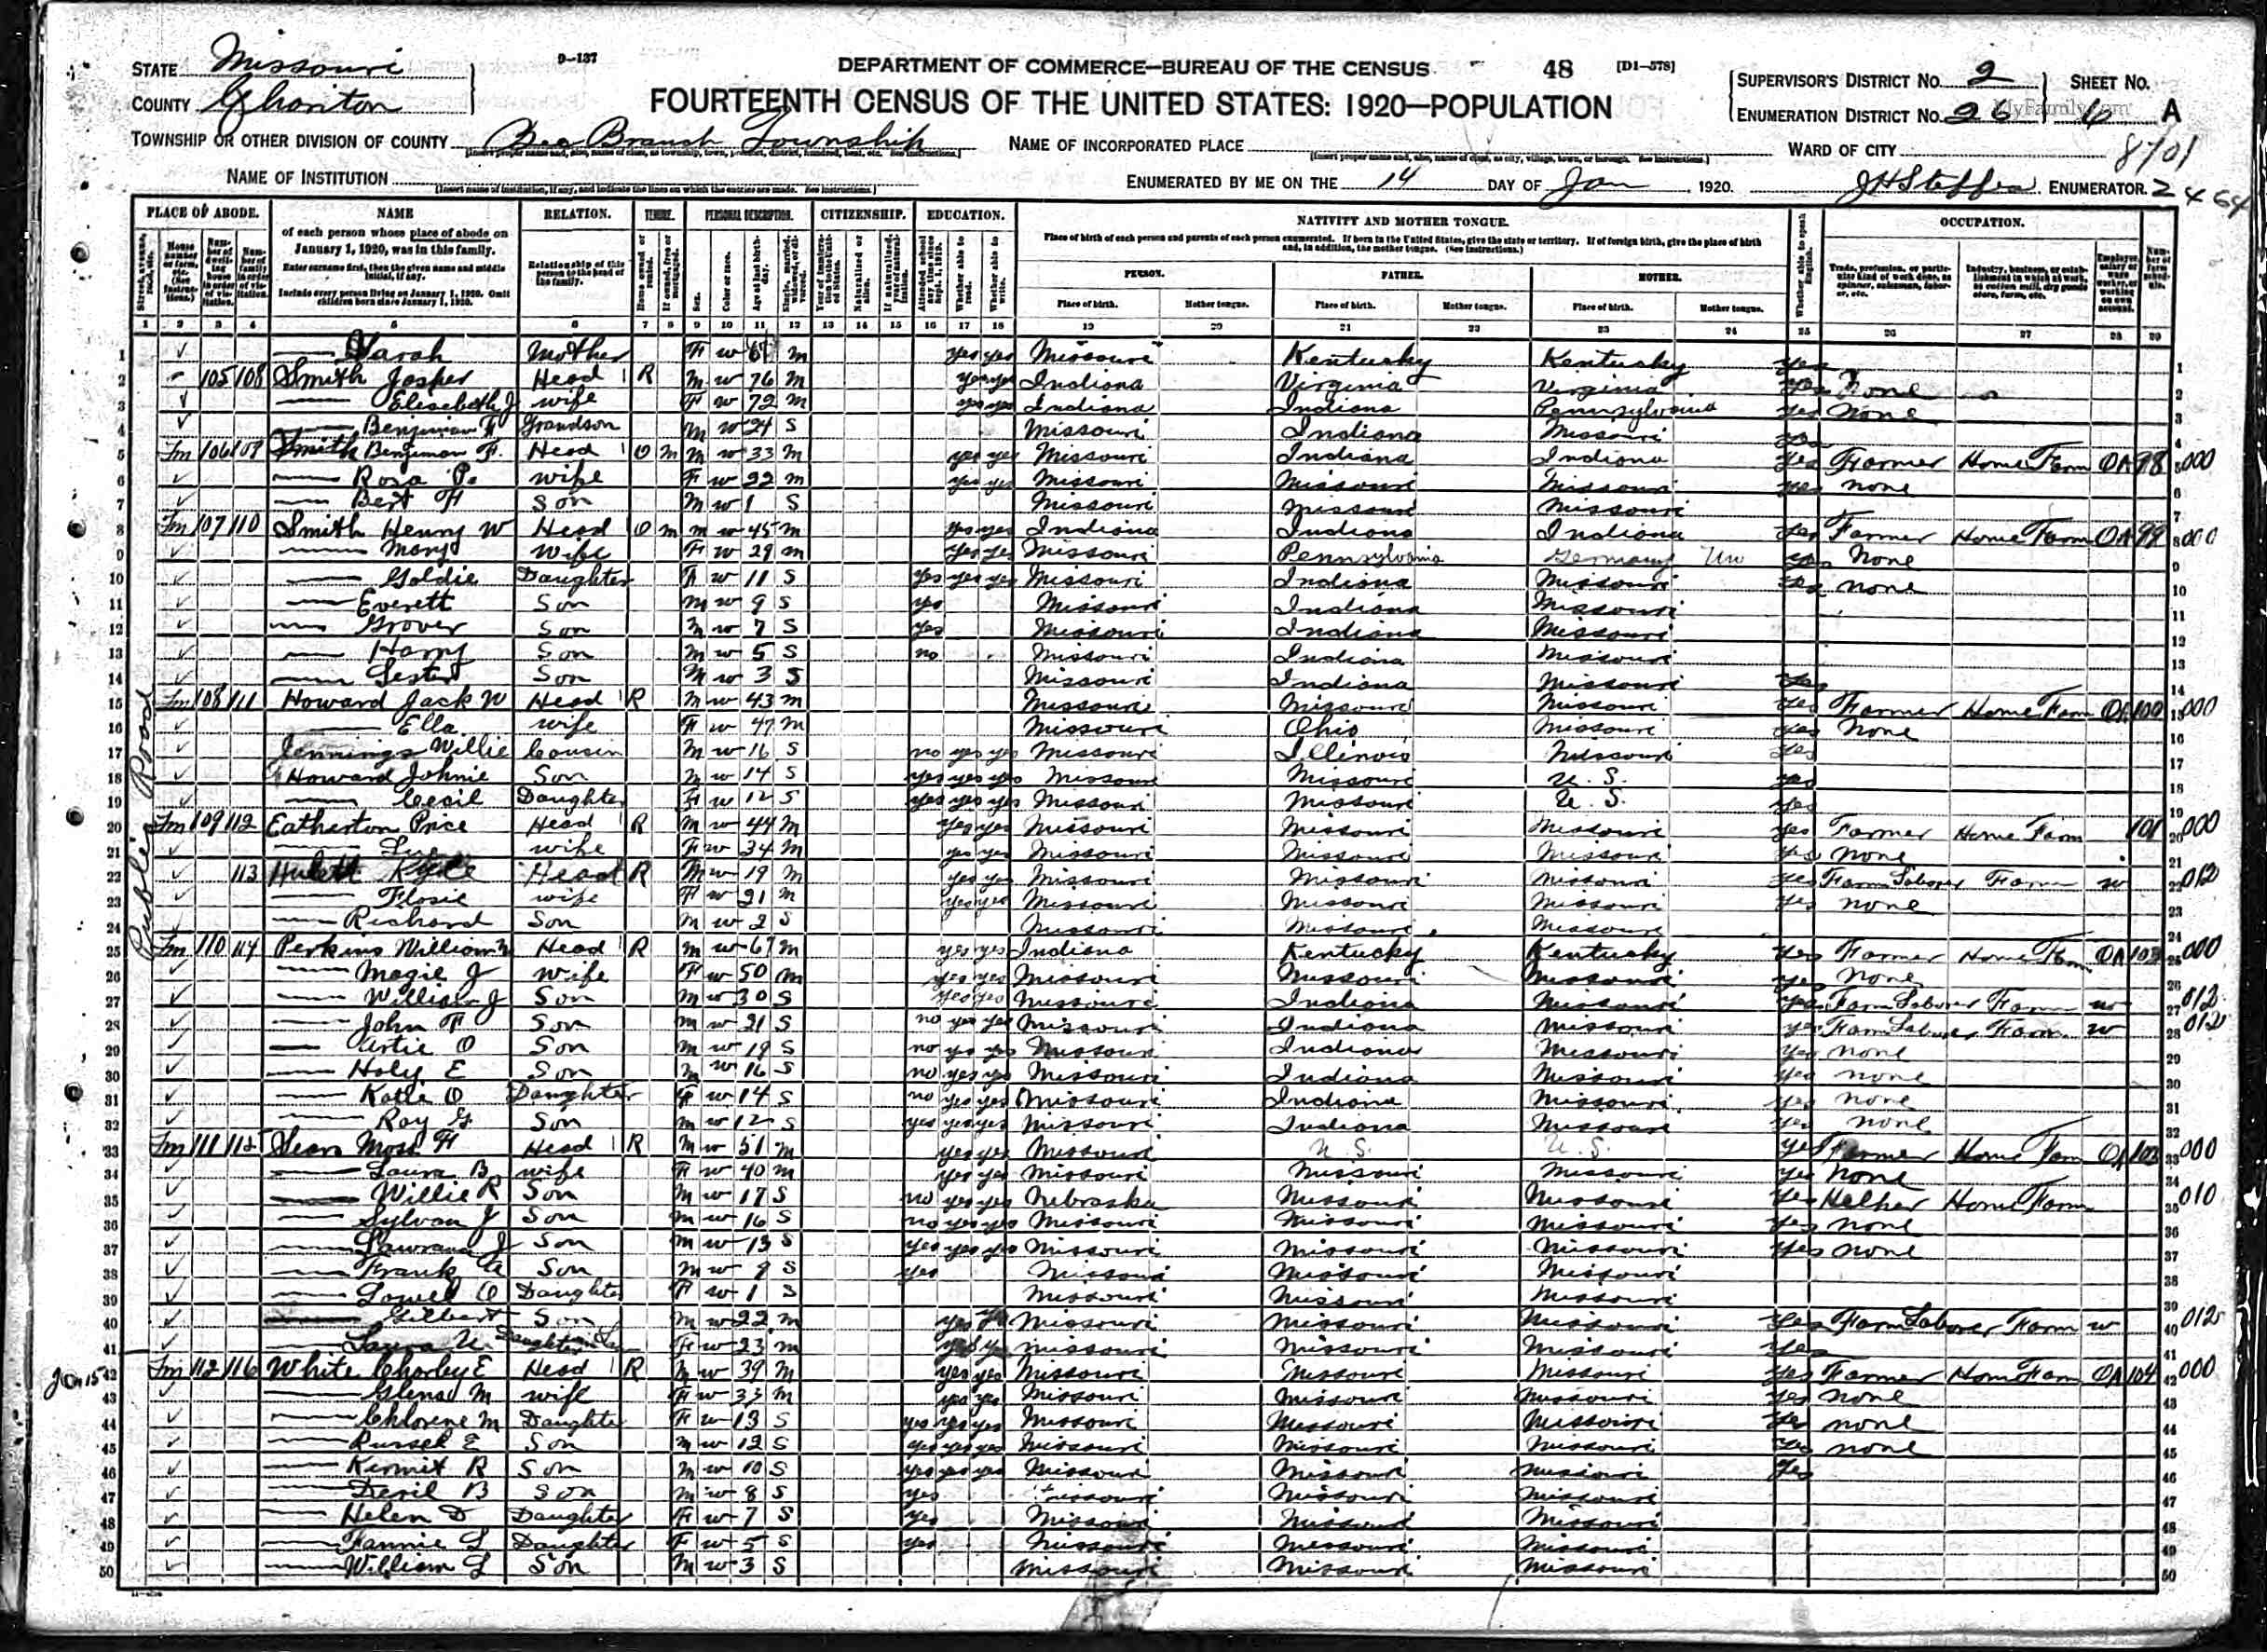 STATE Missouri
9-137
DEPARTMENT OF COMMERCE—BUREAU OF THE CENSUS
48 [D1-578]
SUPERVISOR'S DISTRICT No. 2 SHEET No.
COUNTY Chariton
FOURTEENTH CENSUS OF THE UNITED STATES: 1920—POPULATION
ENUMERATION DISTRICT No. 26 6 A
MyFamily.com
TOWNSHIP OR OTHER DIVISION OF COUNTY Bee Branch Township
NAME OF INCORPORATED PLACE
WARD OF CITY
8701
NAME OF INSTITUTION
ENUMERATED BY ME ON THE 14 DAY OF Jan, 1920. ENUMERATOR.
2464
PLACE OF ABODE. NAME RELATION. TENURE. PERSONAL DESCRIPTION. CITIZENSHIP. EDUCATION. NATIVITY AND MOTHER TONGUE. OCCUPATION.
of each person whose place of abode on January 1, 1920, was in this family.
Enter surname first, then the given name and middle initial, if any.
Include every person living on January 1, 1920. Omit children born since January 1, 1920.
Relationship of this person to the head of the family.
Place of birth of each person and parents of each person enumerated. If born in the United States, give the state or territory. If of foreign birth, give the place of birth and, in addition, the mother tongue. (See Instructions.)
PERSON. FATHER. MOTHER.
Place of birth. Mother tongue. Place of birth. Mother tongue. Place of birth. Mother tongue.
1 2 3 4 5 6 7 8 9 10 11 12 13 14 15 16 17 18 19 20 21 22 23 24 25 26 27 28 29
Public Road
1 Sarah Mother F w m yes yes Missouri Kentucky Kentucky yes
2 105 108 Smith Jasper Head R M w 76 m yes yes Indiana Virginia Virginia yes None
3 Elisebeth J wife F w 72 m yes yes Indiana Indiana Pennsylvania yes none
4 Benjiman F Grandson M w 24 S Missouri Indiana Missouri yes
5 Fm 106 109 Smith Benjiman F. Head O m M w 33 m yes yes Missouri Indiana Indiana yes Farmer Home Farm OA 98 000
6 Rosa P. wife F w 22 m yes yes Missouri Missouri Missouri yes none
7 Bert F Son M w 1 S Missouri Missouri Missouri
8 Fm 107 110 Smith Henry W Head O m m w 45 m yes yes Indiana Indiana Indiana yes Farmer Home Farm OA 99 000
9 Mary wife F w 29 m yes yes Missouri Pennsylvania Germany Un yes None
10 Goldie Daughter F w 11 S yes yes yes Missouri Indiana Missouri yes none
11 Everett Son M w 9 S yes Missouri Indiana Missouri
12 Grover Son M w 7 S yes Missouri Indiana Missouri
13 Harry Son M w 5 S no Missouri Indiana Missouri
14 Lester Son M w 3 S Missouri Indiana Missouri yes
15 Fm 108 111 Howard Jack W Head R M w 43 m Missouri Missouri Missouri yes Farmer Home Farm OA 100 000
16 Ella wife F w 47 m Missouri Ohio Missouri yes None
17 Jennings Willie Cousin M w 16 S no yes yes Missouri Illinois Missouri yes
18 Howard Johnie Son M w 14 S yes yes yes Missouri Missouri U. S. yes
19 Cecil Daughter F w 12 S yes yes yes Missouri Missouri U. S. yes
20 Fm 109 112 Eatherton Price Head R M w 44 m yes yes Missouri Missouri Missouri yes Farmer Home Farm 101 000
21 wife F w 34 m yes yes Missouri Missouri Missouri yes none
22 113 Head R M w 19 m yes yes Missouri Missouri Missouri yes Farm Laborer Farm w 012
23 Flosie wife F w 21 m yes yes Missouri Missouri Missouri yes none
24 Richard Son M w 2 S Missouri Missouri Missouri
25 Fm 110 114 Perkins William Head R m w 67 m yes yes Indiana Kentucky Kentucky yes Farmer Home Farm OA 000
26 Magie J wife F w 50 m yes yes Missouri Missouri Missouri yes None
27 William J Son M w 30 S yes yes Missouri Indiana Missouri yes Farm Laborer Farm w 012
28 John F Son m w 21 S no yes yes Missouri Indiana Missouri yes Farm Laborer Farm w 012
29 Artie O Son m w 19 S no yes yes Missouri Indiana Missouri yes none
30 Holy E Son m w 16 S no yes yes Missouri Indiana Missouri yes none
31 Katie O Daughter F w 14 S no yes yes Missouri Indiana Missouri yes none
32 Roy G Son m w 12 S yes yes yes Missouri Indiana Missouri yes none
33 Fm 111 115 Sears Head R M w 51 m yes yes Missouri U. S. U. S. yes Farmer Home Farm OA 000
34 Laura B wife F w 40 m yes yes Missouri Missouri Missouri yes None
35 Willie R Son M w 17 S no yes yes Nebraska Missouri Missouri yes Helper Home Farm 010
36 Sylvan J Son M w 16 S no yes yes Missouri Missouri Missouri yes none
37 J Son M w 13 S yes yes yes Missouri Missouri Missouri yes none
38 Frank A Son M w S yes Missouri Missouri Missouri
39 Lowel O Daughter F w 1 S Missouri Missouri Missouri
40 Gilbert Son M w 22 m yes Missouri Missouri Missouri yes Farm Laborer Farm w 012
41 Daughter in Law F w 23 m Missouri Missouri Missouri yes
Jan 15 42 Fm 112 116 White Charley E Head R M w 39 M yes yes Missouri Missouri Missouri yes Farmer Home Farm OA 104 000
43 Glena M wife F w 33 M yes yes Missouri Missouri Missouri yes none
44 Chlorene M Daughter F w 13 S yes yes yes Missouri Missouri Missouri yes none
45 Russel E Son M w 12 S yes yes yes Missouri Missouri Missouri yes none
46 Kermit R Son M w 10 S yes yes yes Missouri Missouri Missouri yes
47 Deril B Son M w 8 S yes Missouri Missouri Missouri
48 Helen D Daughter F w 7 S yes Missouri Missouri Missouri
49 Fannie L Daughter F w 5 S yes Missouri Missouri Missouri
50 William L Son M w 3 S Missouri Missouri Missouri